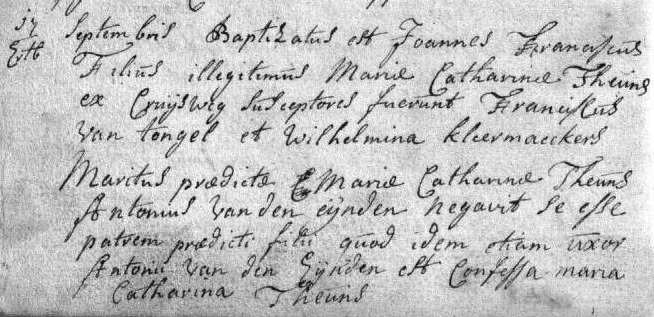 17 Septembris Baptizatus est Joannes Franciscus
Filius illegitimus Mariæ Catharinæ Theuns
ex Cruijsweg susceptores fuerunt Franciscus
van tongel et Wilhelmina kleermaeckers
Maritus prædictæ Mariæ Catharinæ Theuns
Antonius van den eijnden negavit se esse
patrem prædicti filii quod idem etiam uxor
Antonii van den Eijnden est Confessa maria
Catharina Theuns